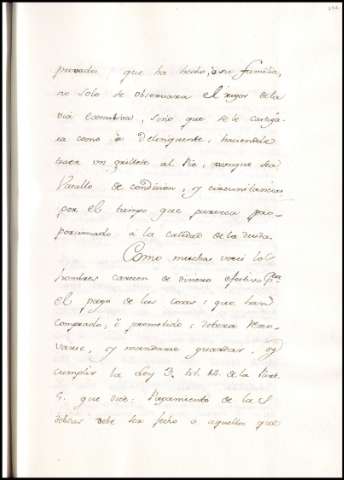 provada que ha hecho, a su familia,
no solo se observara el rigor de la
via executiva, sino que se le castiga-
ra como a delinquente, haciendole
traer un grillete al Pie, aunque sea
Vasallo de condicion, y circunstancias
por el tiempo que paresca pro-
porcionado a la calidad de la deuda.
Como muchas veces los
hombres carecen de dinero efectivo Para
el pago de las cosas, que han
comprado, ò prometido; debera
y mandarse guardar, y
cumplir la Ley 3. tit. 14. de la Part.
5. que dice: Pagamiento de las
debdas debe ser fecho a aquellos que